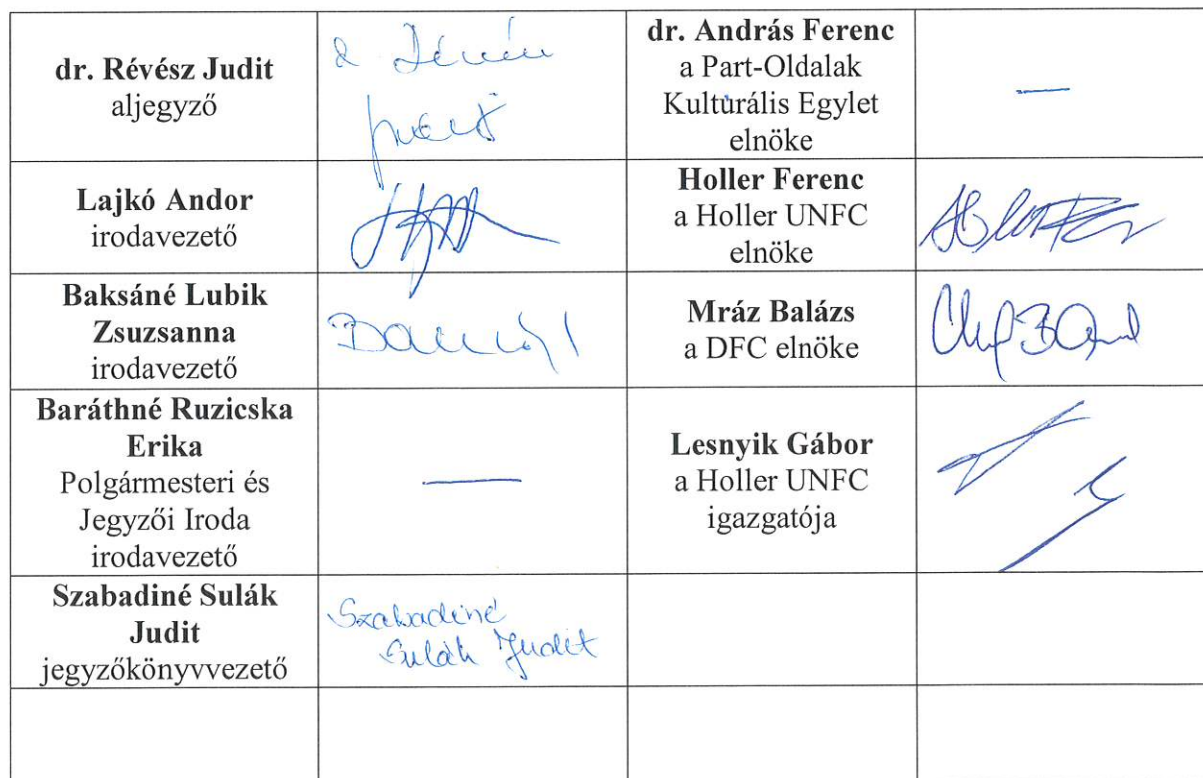 dr. Révész Judit
aljegyző
dr. András Ferenc
a Part-Oldalak
Kulturális Egylet
elnöke
—
Lajkó Andor
irodavezető
Holler Ferenc
a Holler UNFC
elnöke
Baksáné Lubik
Zsuzsanna
irodavezető
Mráz Balázs
a DFC elnöke
Baráthné Ruzicska
Erika
Polgármesteri és
Jegyzői Iroda
irodavezető
—
Lesnyik Gábor
a Holler UNFC
igazgatója
Szabadiné Sulák
Judit
jegyzőkönyvvezető
Szabadiné
Sulák Judit